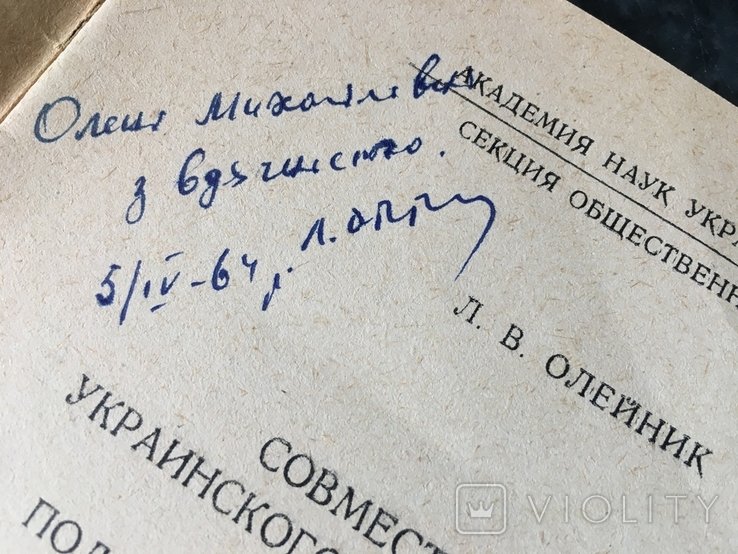 Олені Михайлівні
з вдячністю.
5/IV-64 р.
АКАДЕМИЯ НАУК УКРА
СЕКЦИЯ ОБЩЕСТВЕНН
Л. В. ОЛЕЙНИК
СОВМЕСТ
УКРАИНСКОГО
ПОЛ
VIOLITY